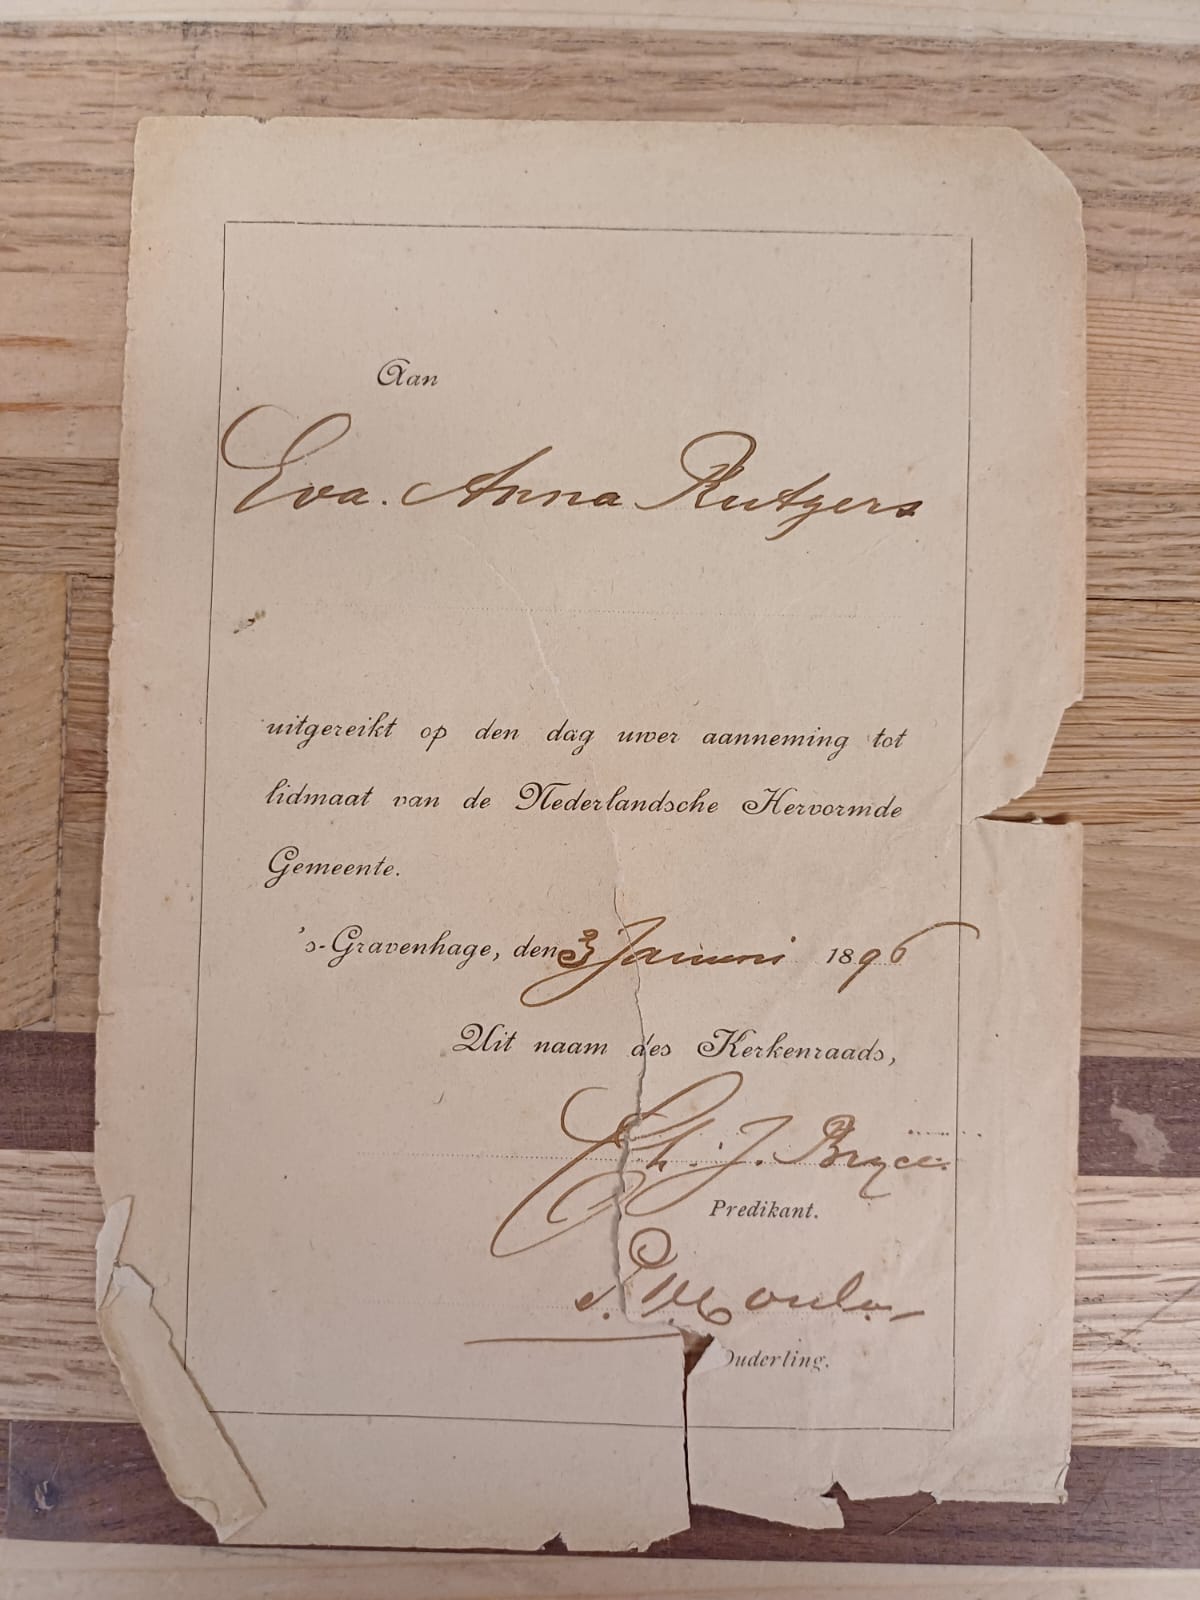 Aan
Eva. Anna Rutgers
uitgereikt op den dag uwer aanneming tot
lidmaat van de Nederlandsche Hervormde
Gemeente.
's-Gravenhage, den 3 Januari 1896
Uit naam des Kerkenraads,
Ch. J. Bryce.
Predikant.
Ouderling.